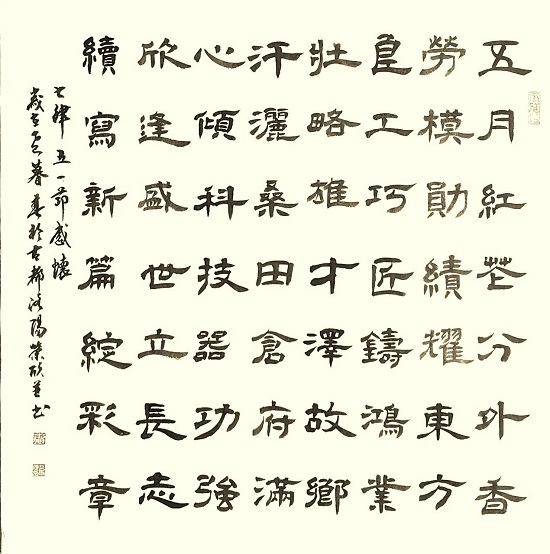 五月紅花分外香
勞模勛績耀東方
良工巧匠鑄鴻業
壯略雄才澤故鄉
汗灑桑田倉府滿
心傾科技器功強
欣逢盛世立長志
續寫新篇綻彩章
七律 五一節感懷
歲在乙巳暮春於古都洛陽並書